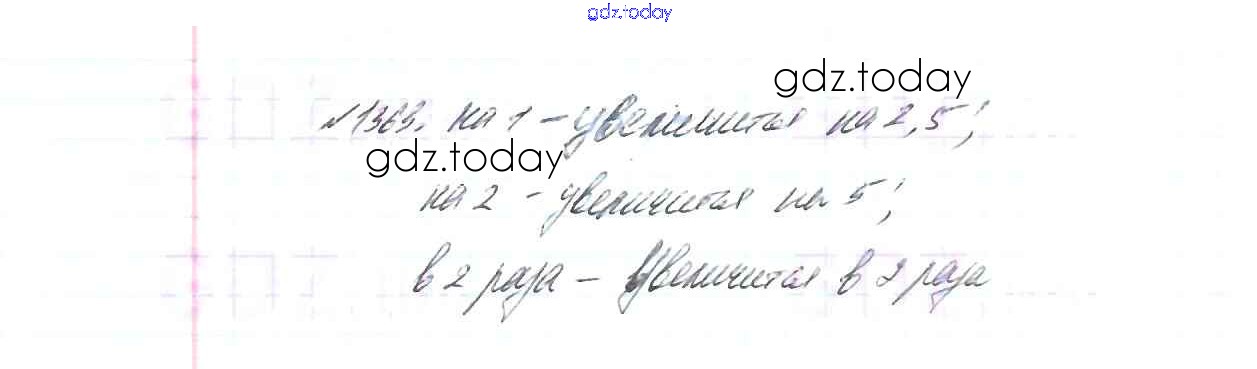 gdz.today
gdz.today
№1363. на 1 – увеличится на 2,5;
gdz.today
на 2 – увеличится на 5;
в 2 раза – Увеличится в 2 раза